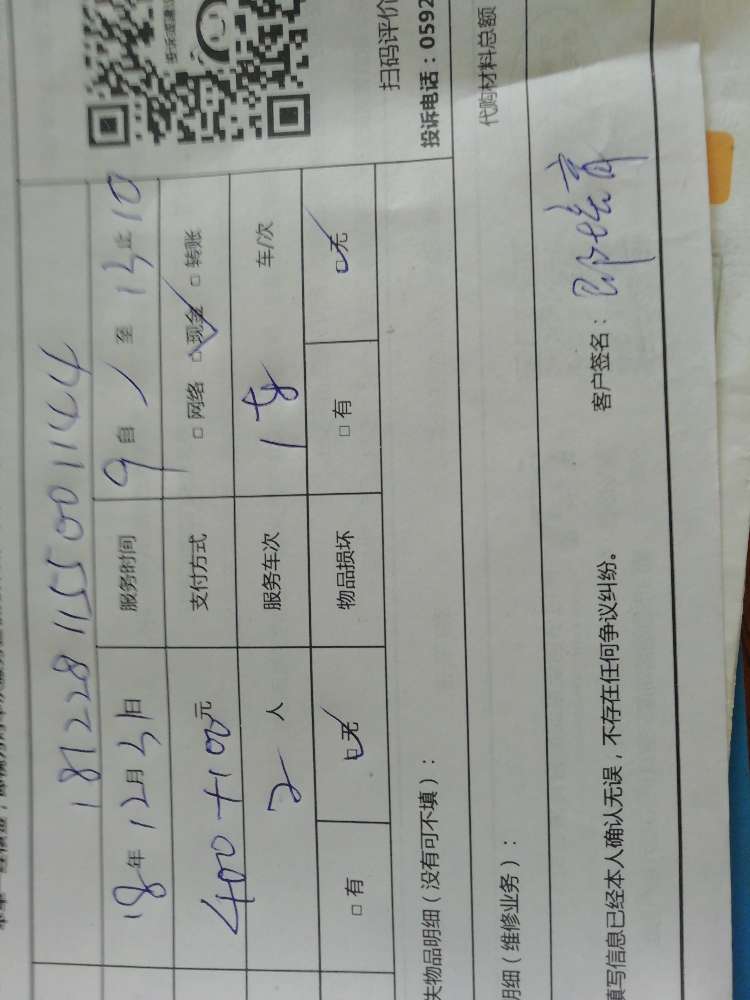 1812281155001144
18年12月31日 服务时间 9自 / 至 13止10
400+100元 支付方式 □网络 ☑现金 □转账
2人 服务车次 1 车/次
□有 ☑无 物品损坏 □有 ☑无
扫码评价
投诉电话：0592
失物品明细（没有可不填）：
代购材料总额
明细（维修业务）：
填写信息已经本人确认无误，不存在任何争议纠纷。
客户签名：